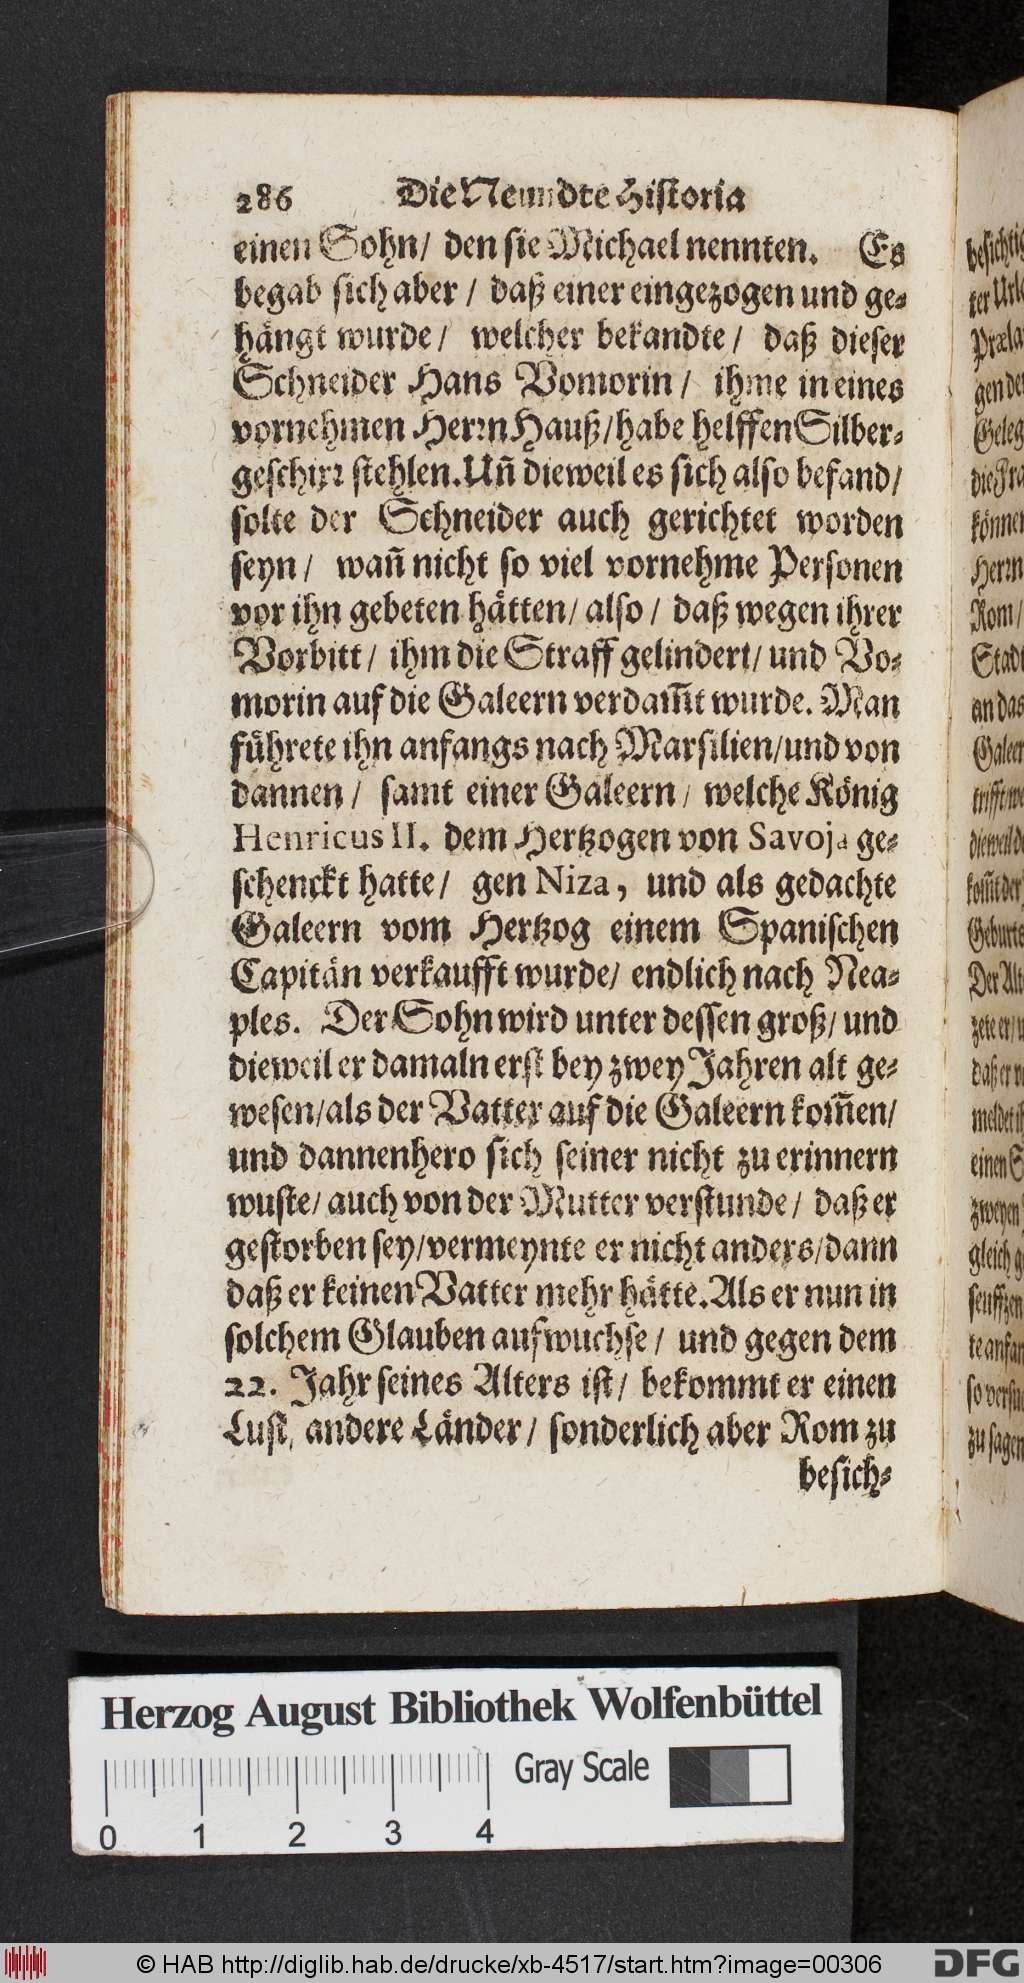 286 Die Neundte Historia
einen Sohn/ den sie Michael nennten. Es
begab sich aber / daß einer eingezogen und ge-
hängt wurde/ welcher bekandte/ daß dieser
Schneider Hans Vomorin/ ihme in eines
vornehmen Herrn Hauß/habe helffen Silber-
geschirr stehlen. Uñ dieweil es sich also befand/
solte der Schneider auch gerichtet worden
seyn/ wañ nicht so viel vornehme Personen
vor ihn gebeten hätten/ also/ daß wegen ihrer
Vorbitt/ ihm die Straff gelindert/ und Vo-
morin auf die Galeern verdam̃t wurde. Man
führete ihn anfangs nach Marsilien/und von
dannen/ samt einer Galeern/ welche König
Henricus II. dem Hertzogen von Savoja ge-
schenckt hatte/ gen Niza, und als gedachte
Galeern vom Hertzog einem Spanischen
Capitän verkaufft wurde/ endlich nach Nea-
ples. Der Sohn wird unter dessen groß/ und
dieweil er damaln erst bey zwey Jahren alt ge-
wesen/als der Vatter auf die Galeern kom̃en/
und dannenhero sich seiner nicht zu erinnern
wuste/ auch von der Mutter verstunde/ daß er
gestorben sey/vermeynte er nicht anders/dann
daß er keinen Vatter mehr hätte. Als er nun in
solchem Glauben aufwuchse/ und gegen dem
22. Jahr seines Alters ist/ bekommt er einen
Lust, andere Länder/ sonderlich aber Rom zu
besich-
besichti
ter Url
Præla
gen de
Geleg
die Pra
können
Herrn
Rom/
Stadt
an das
Galeer
trifft we
dieweil de
kom̃t der
Geburts
Der Alt
zete er/ u
daß er v
meldet ih
einen S
zweyen
gleich g
seuffzen
te anfan
so versu
zu sagen
Herzog August Bibliothek Wolfenbüttel
Gray Scale
0 1 2 3 4
© HAB http://diglib.hab.de/drucke/xb-4517/start.htm?image=00306
DFG